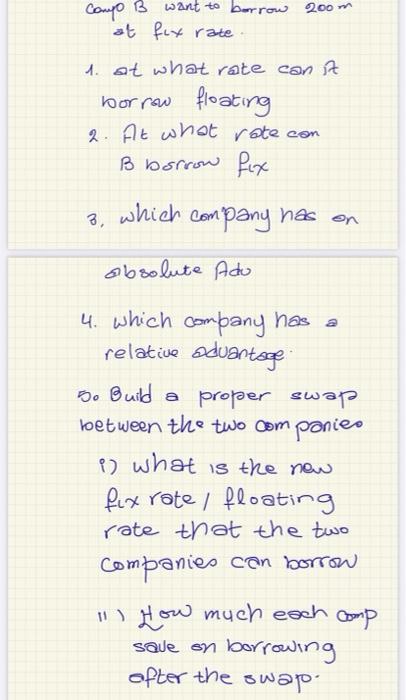 Comp B want to borrow 200m
at fix rate.
1. at what rate can A
borrow floating
2. At what rate can
B borrow fix
3, which company has an
absolute Adv
4. which company has a
relative advantage.
5. Build a proper swap
between the two companies
i) what is the new
fix rate / floating
rate that the two
companies can borrow
ii) How much each comp
save on borrowing
after the swap.